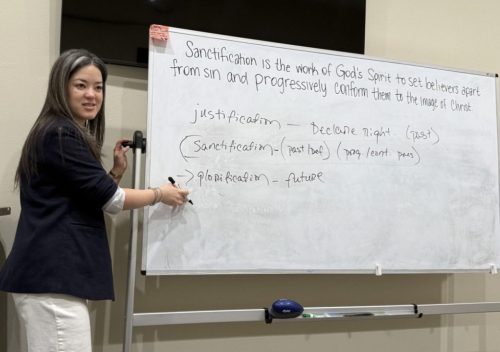 Sanctification is the work of God's Spirit to set believers apart
from sin and progressively conform them to the image of Christ.
justification — Declare right (past)
(Sanctification - (past tense) (prog./cont. pres)
→ glorification - future